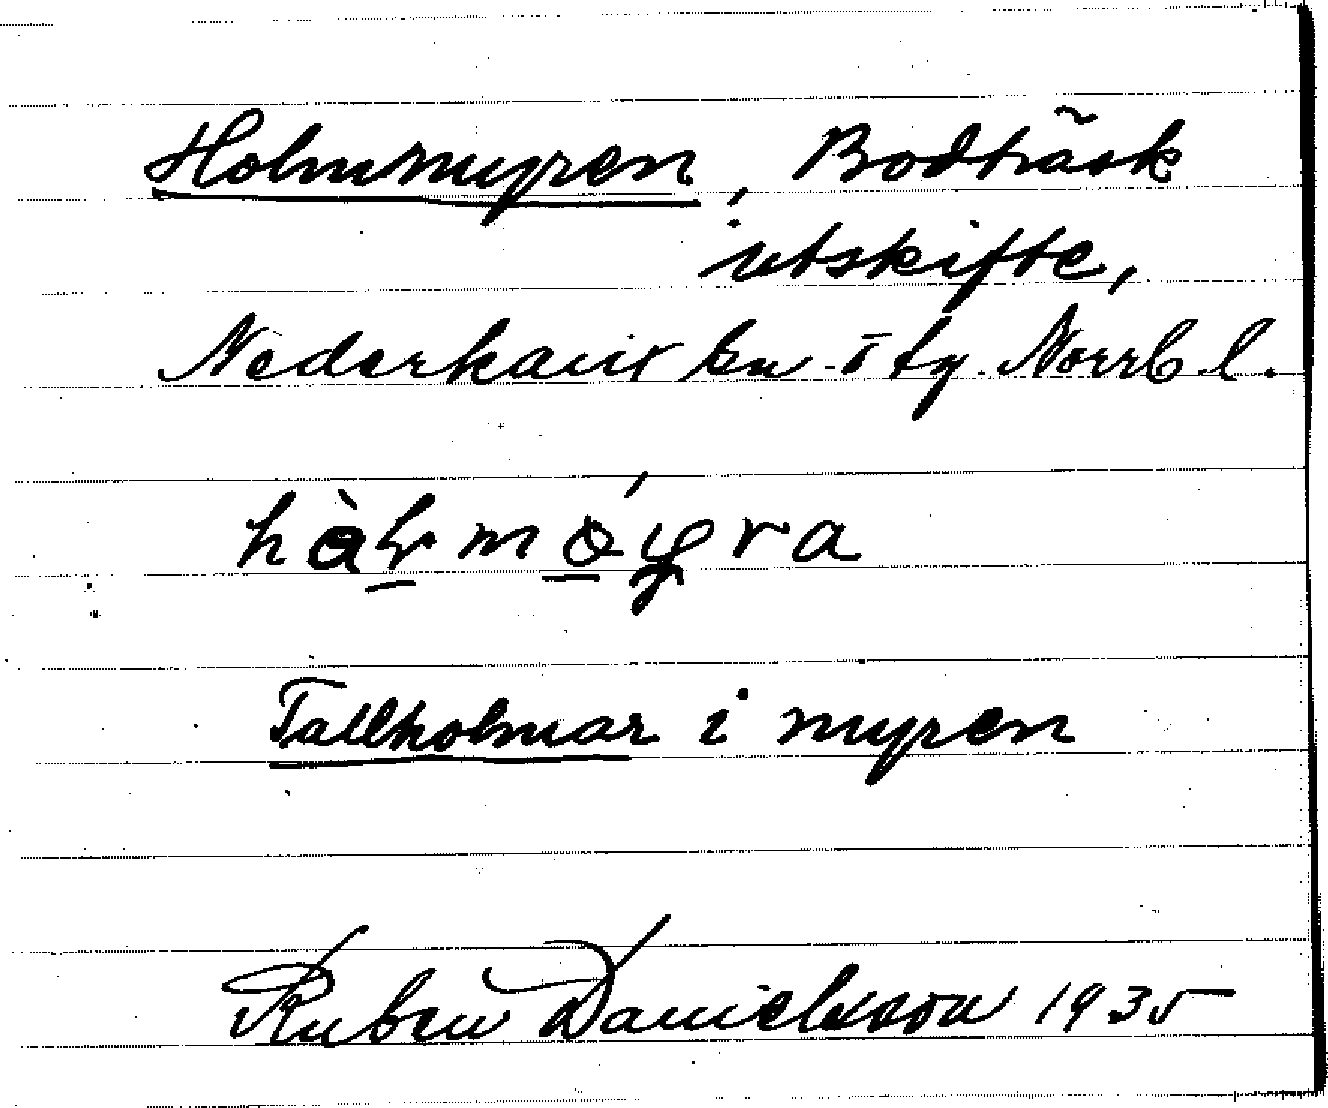 Holmmyren, Bodträsk
utskifte,
Nederkalix sn. o tg. Norrb l.
Tallholmar i myren
Ruben Danielsson 1935